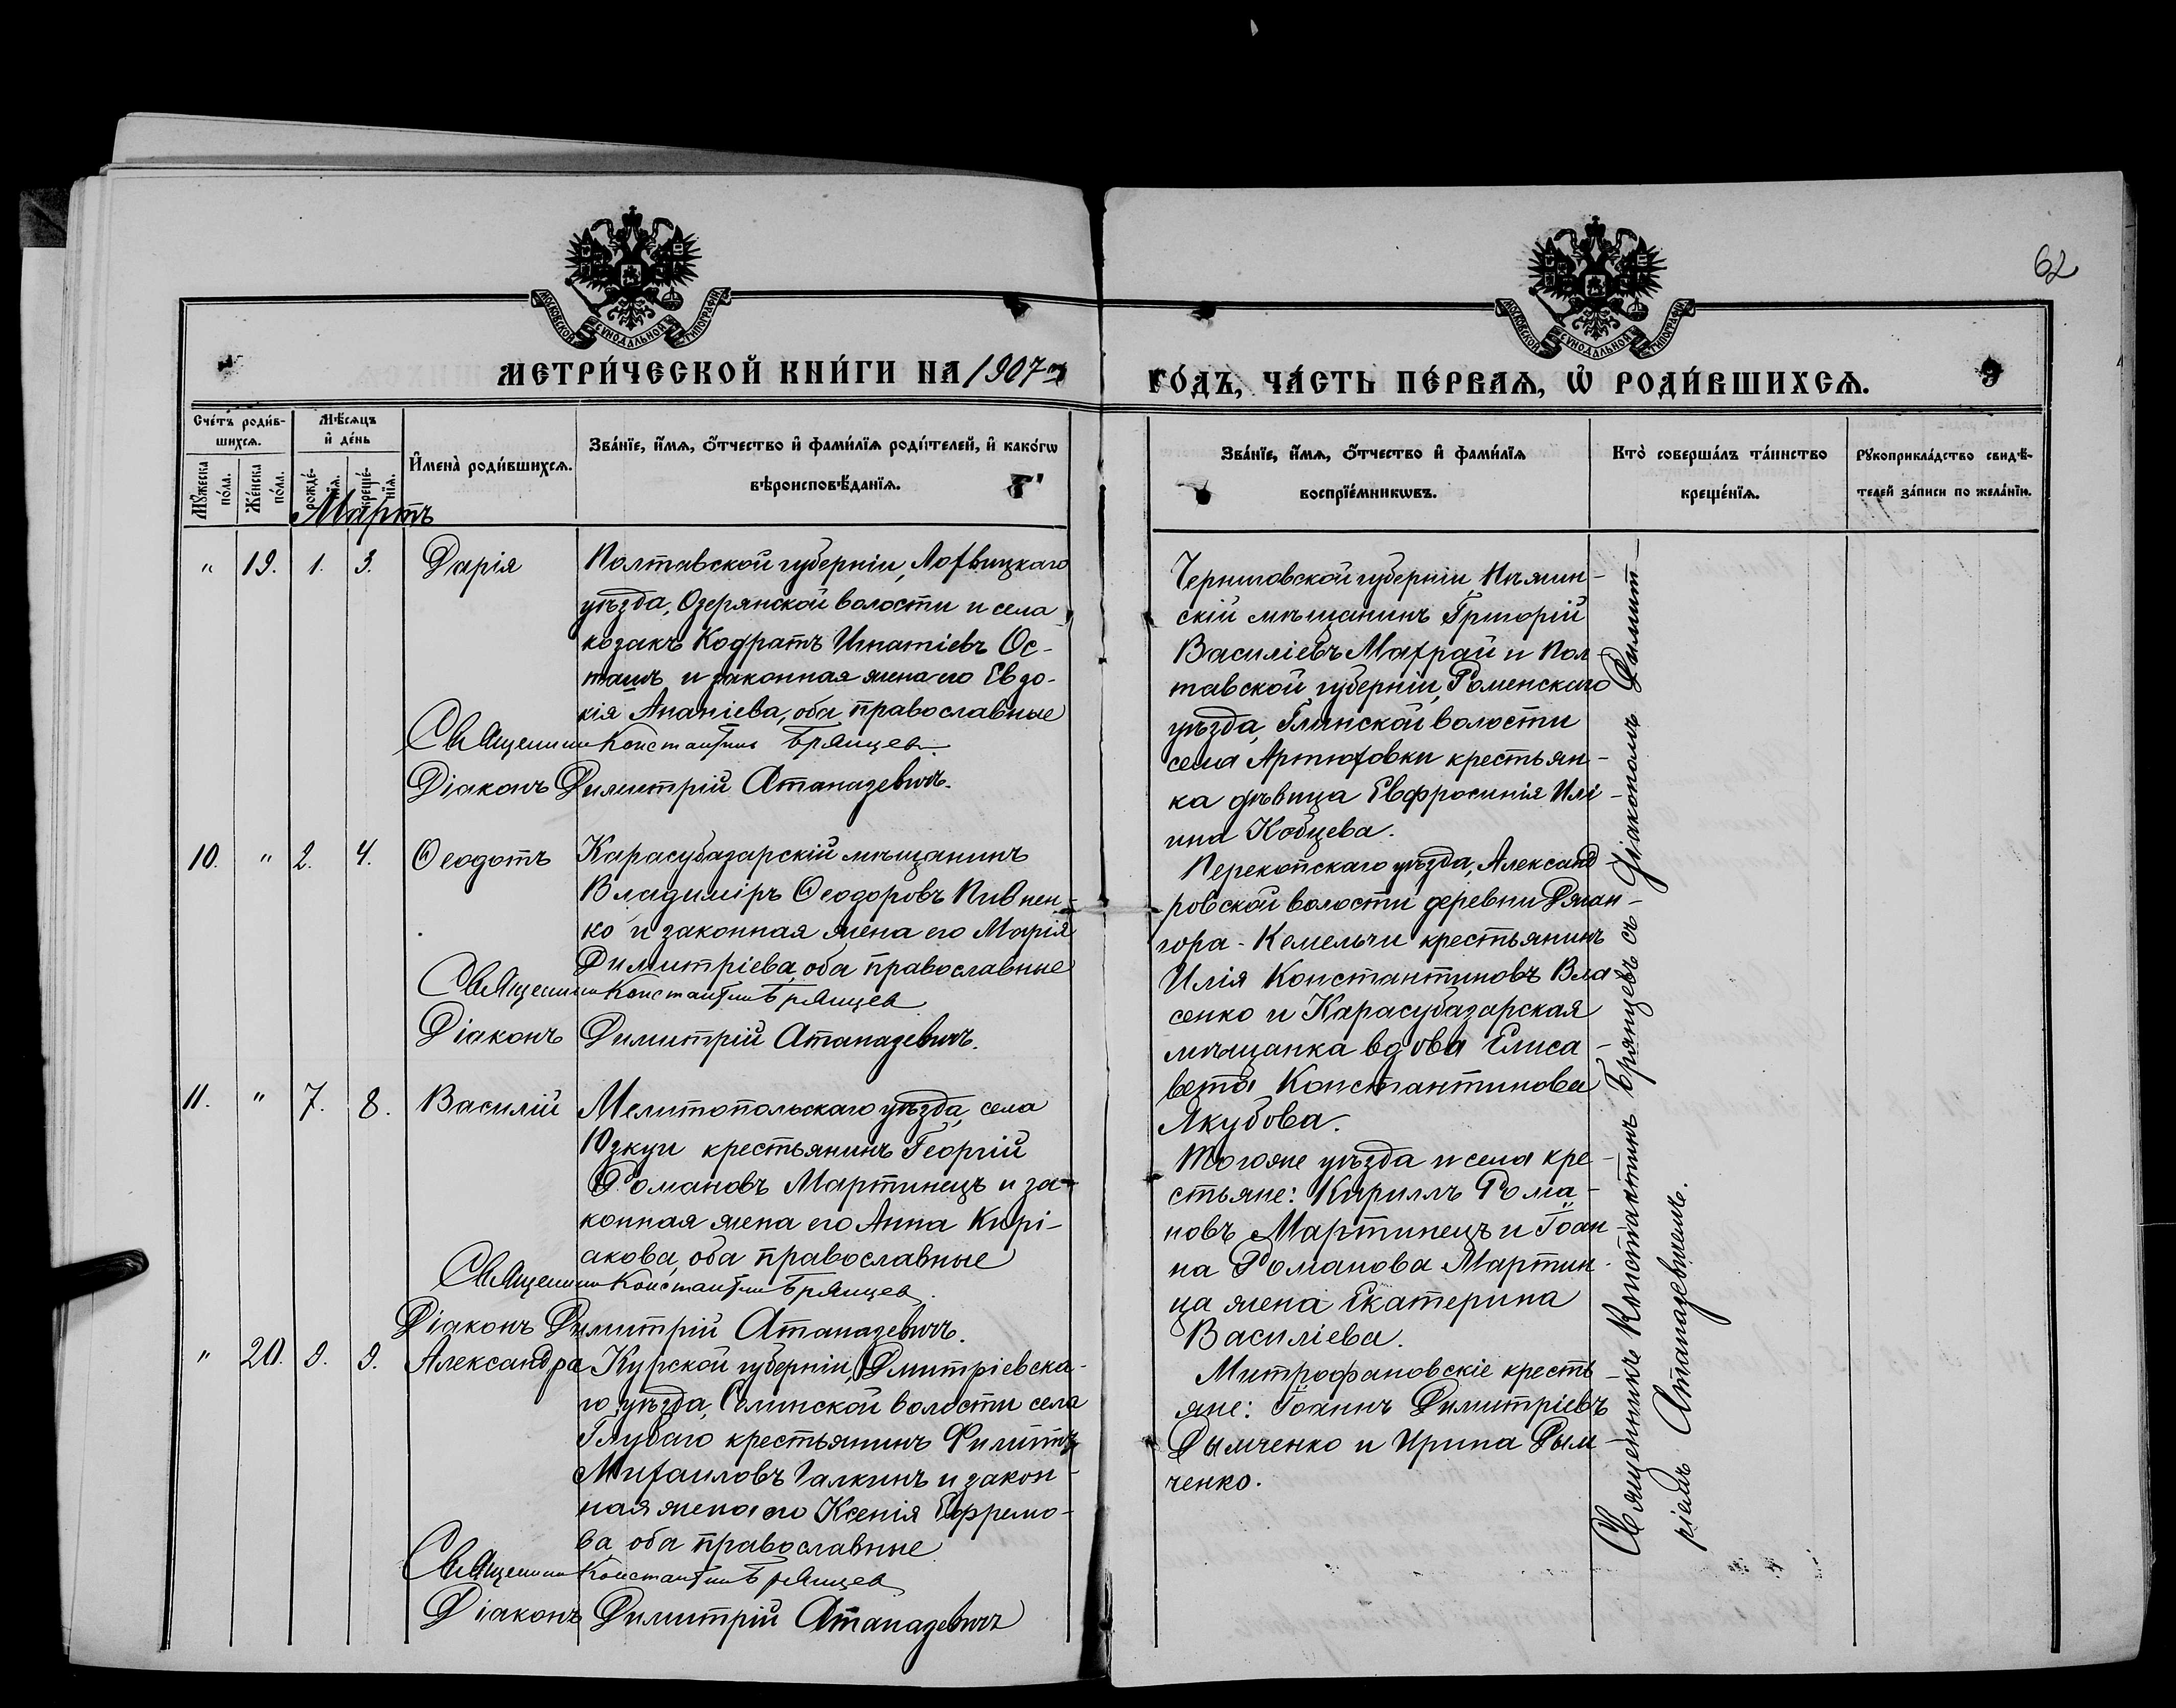 62
МОСКОВСКОЙ СУНОДАЛЬНОЙ ТИПОГРАФІИ
МОСКОВСКОЙ СУНОДАЛЬНОЙ ТИПОГРАФІИ
МЕТРИ́ЧЕСКОЙ КНИ́ГИ НА 1907й
ГО́ДЪ, ЧА́СТЬ ПЕ́РВАѦ, Ѡ҆ РОДИ́ВШИХСѦ.
Сче́тъ роди́в-
шихсѧ.
Мꙋжеска по́ла.
Же́нска по́ла.
Мѣ́сѧцъ
и҆ де́нь
рожде́-
нїѧ.
креще́-
нїѧ.
И҆мена̀ роди́вшихсѧ.
Зва́нїе, и҆́мѧ, ѻ҆́тчество и҆ фами́лїѧ роди́телей, и҆ како́гѡ
вѣроисповѣ́данїѧ.
Зва́нїе, и҆́мѧ, ѻ҆́тчество и҆ фами́лїѧ
воспрїе́мникѡвъ.
Кто̀ соверша́лъ та́инство
креще́нїѧ.
Рꙋкоприкла́дство свидѣ́-
телей за́писи по жела́нїю.
Мартъ
" 19. 1. 3. Дарія
Полтавской губерніи, Лохвицкаго
уѣзда, Озерянской волости и села
козакъ Кодратъ Игнатіевъ Ос-
ташъ и законная жена его Евдо-
кія Ананіева, оба православные
Священник Константин Брянцев
Діаконъ Димитрій Атаназевичъ.
Черниговской губерніи Нѣжин-
скій мѣщанинъ Григорій
Василіевъ Махрай и Пол-
тавской губерніи, Роменскаго
уѣзда, Глинской волости
села Артюховки крестьян-
ка дѣвица Евфросинія Илі-
ина Кобцева.
10. " 2. 4. Ѳеодотъ
Карасубазарскій мѣщанинъ
Владиміръ Ѳеодоровъ Пивнен-
ко и законная жена его Марія
Димитріева, оба православные
Священник Константин Брянцев
Діаконъ Димитрій Атаназевичъ.
Перекопскаго уѣзда, Александ
ровской волости деревни Джан-
гора-Кемельчи крестьянинъ
Илія Константиновъ Вла
сенко и Карасубазарская
мѣщанка вдова Елиса-
вета Константинова
Якубова.
11. " 7. 8. Василій
Мелитопольскаго уѣзда, села
Юзкуи крестьянинъ Георгій
Романовъ Мартинецъ и за-
конная жена его Анна Кирі-
акова, оба православные
Священник Константин Брянцев.
Діаконъ Димитрій Атаназевичъ.
Тогоже уѣзда и села кре-
стьяне: Кириллъ Рома-
новъ Мартинецъ и Іоан-
на Романова Мартин-
ца жена Екатерина
Василіева.
" 20. 9. 9. Александра
Курской губерніи, Дмитріевска-
го уѣзда, волости села
Глубаго крестьянинъ Филиппъ
Михаиловъ Галкинъ и закон-
ная жена его Ксенія Ефремо-
ва оба православные
Священник Константин Брянцев
Діаконъ Димитрій Атаназевичъ
Митрофановскіе кресть-
яне: Іоаннъ Димитріевъ
Дымченко и Ирина Дым-
ченко.
Священникъ Константинъ Брянцевъ съ діакономъ Димит-
ріемъ Атаназевичемъ.